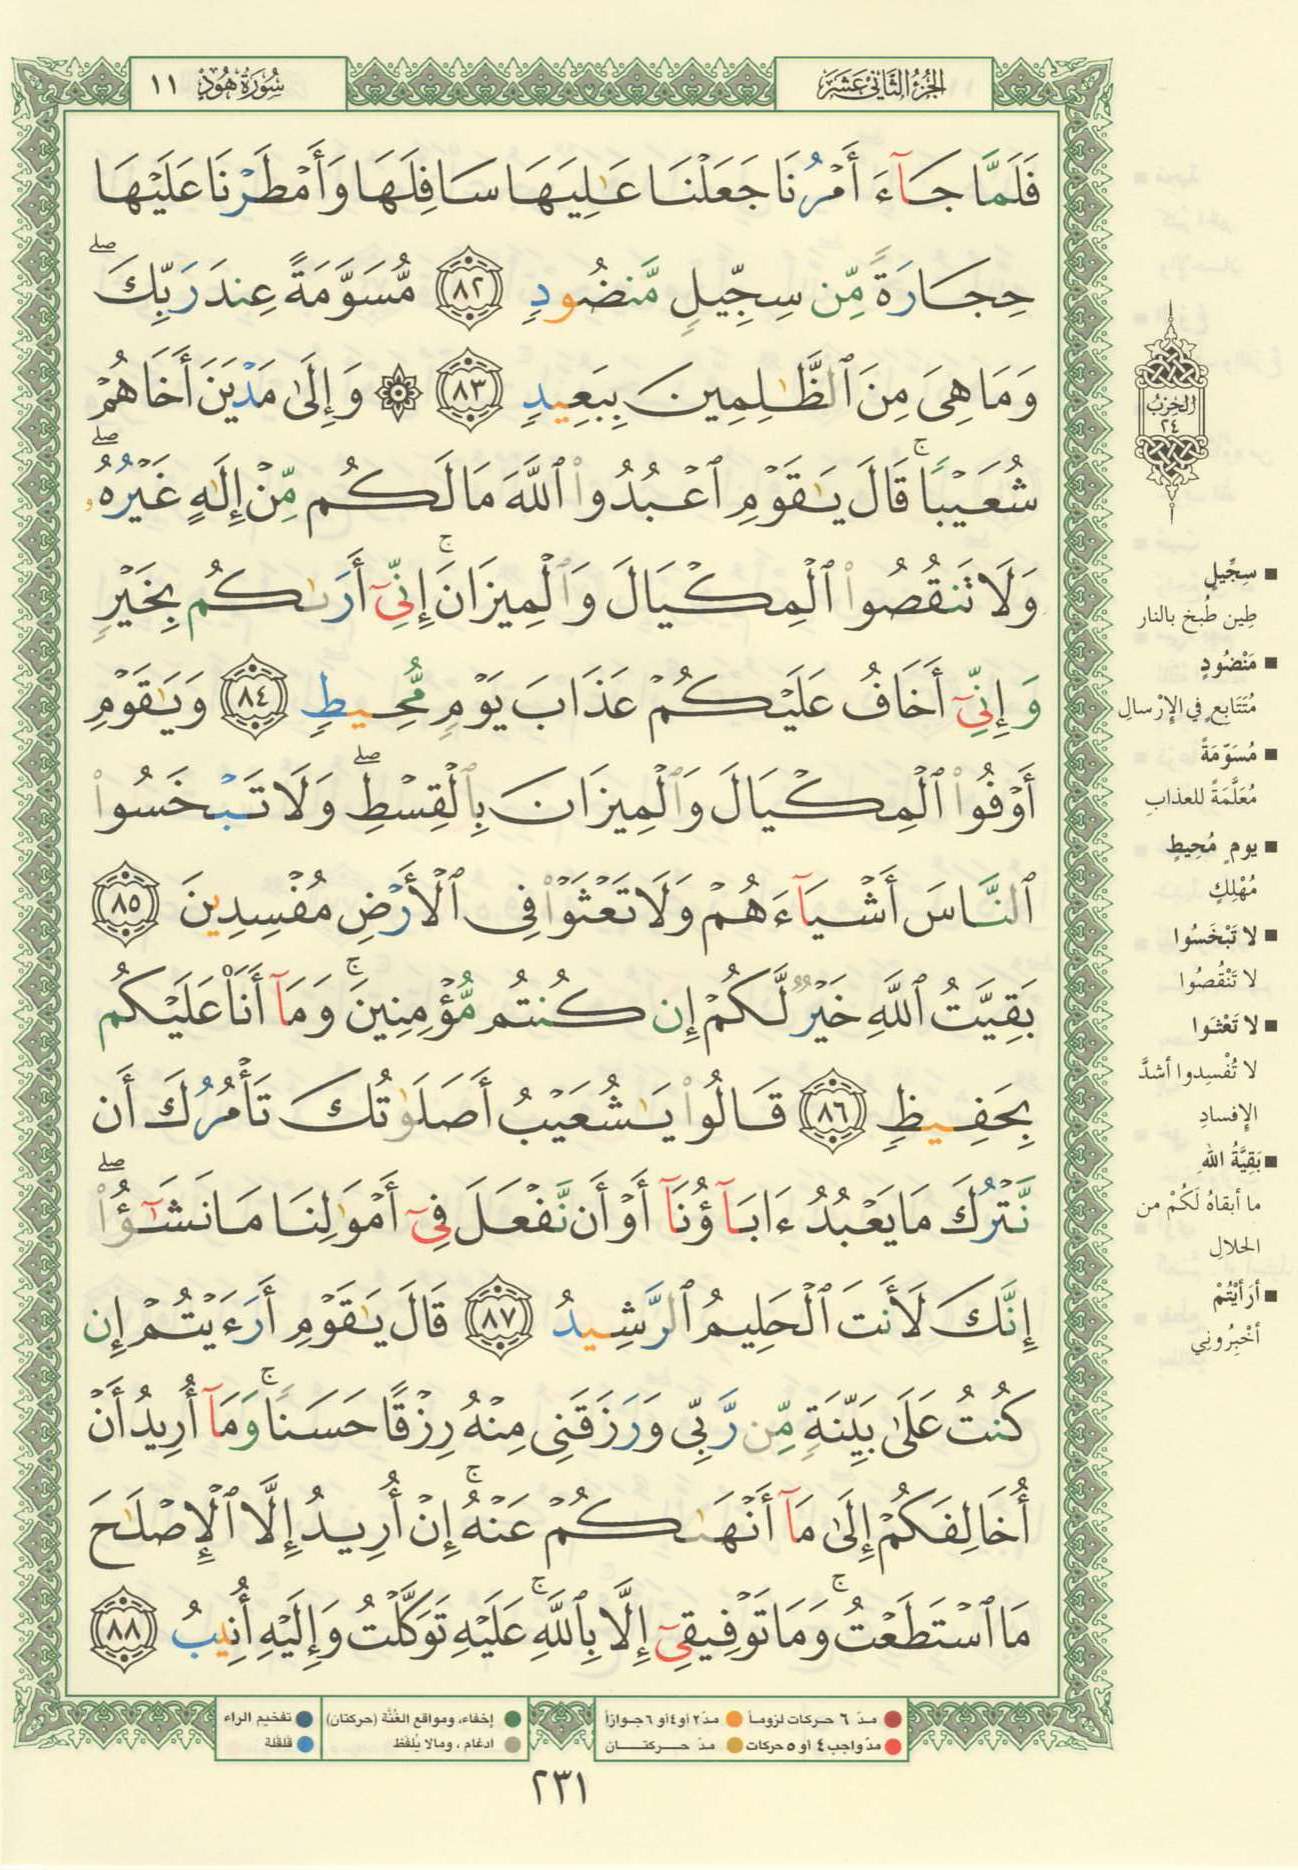 الجُزْءُ الثَّانِي عَشَرَ
سُورَةُ هُودٍ ١١
فَلَمَّا جَآءَ أَمْرُنَا جَعَلْنَا عَٰلِيَهَا سَافِلَهَا وَأَمْطَرْنَا عَلَيْهَا
حِجَارَةً مِّن سِجِّيلٍ مَّنضُودٍ ٨٢ مُّسَوَّمَةً عِندَ رَبِّكَ ۖ
وَمَا هِىَ مِنَ ٱلظَّٰلِمِينَ بِبَعِيدٍ ٨٣ ۞ وَإِلَىٰ مَدْيَنَ أَخَاهُمْ
شُعَيْبًا ۚ قَالَ يَٰقَوْمِ ٱعْبُدُوا۟ ٱللَّهَ مَا لَكُم مِّنْ إِلَٰهٍ غَيْرُهُۥ ۖ
وَلَا تَنقُصُوا۟ ٱلْمِكْيَالَ وَٱلْمِيزَانَ ۚ إِنِّىٓ أَرَىٰكُم بِخَيْرٍ
وَإِنِّىٓ أَخَافُ عَلَيْكُمْ عَذَابَ يَوْمٍ مُّحِيطٍ ٨٤ وَيَٰقَوْمِ
أَوْفُوا۟ ٱلْمِكْيَالَ وَٱلْمِيزَانَ بِٱلْقِسْطِ ۖ وَلَا تَبْخَسُوا۟
ٱلنَّاسَ أَشْيَآءَهُمْ وَلَا تَعْثَوْا۟ فِى ٱلْأَرْضِ مُفْسِدِينَ ٨٥
بَقِيَّتُ ٱللَّهِ خَيْرٌ لَّكُمْ إِن كُنتُم مُّؤْمِنِينَ ۚ وَمَآ أَنَا۠ عَلَيْكُم
بِحَفِيظٍ ٨٦ قَالُوا۟ يَٰشُعَيْبُ أَصَلَوٰتُكَ تَأْمُرُكَ أَن
نَّتْرُكَ مَا يَعْبُدُ ءَابَآؤُنَآ أَوْ أَن نَّفْعَلَ فِىٓ أَمْوَٰلِنَا مَا نَشَٰٓؤُا۟ ۖ
إِنَّكَ لَأَنتَ ٱلْحَلِيمُ ٱلرَّشِيدُ ٨٧ قَالَ يَٰقَوْمِ أَرَءَيْتُمْ إِن
كُنتُ عَلَىٰ بَيِّنَةٍ مِّن رَّبِّى وَرَزَقَنِى مِنْهُ رِزْقًا حَسَنًا ۚ وَمَآ أُرِيدُ أَنْ
أُخَالِفَكُمْ إِلَىٰ مَآ أَنْهَىٰكُمْ عَنْهُ ۚ إِنْ أُرِيدُ إِلَّا ٱلْإِصْلَٰحَ
مَا ٱسْتَطَعْتُ ۚ وَمَا تَوْفِيقِىٓ إِلَّا بِٱللَّهِ ۚ عَلَيْهِ تَوَكَّلْتُ وَإِلَيْهِ أُنِيبُ ٨٨
الحِزْبُ
٢٤
■ سِجِّيلٍ
طِين طُبخ بالنار
■ مَنْضُودٍ
مُتَتَابِعٍ في الإِرْسالِ
■ مُسَوّمَةً
مُعَلَّمَةً للعذابِ
■ يومٍ مُحِيطٍ
مُهْلِكٍ
■ لا تَبْخَسُوا
لا تَنْقُصُوا
■ لا تَعْثَوا
لا تُفْسِدوا أشدَّ
الإِفسادِ
■ بَقِيَّةُ اللهِ
ما أبقاهُ لَكُمْ من
الحلالِ
■ أرَأيْتُمْ
أخْبِرُوني
مدّ ٦ حركات لزوماً مدّ ٢ أو ٤ أو ٦ جوازاً
مدّ واجب ٤ أو ٥ حركات مدّ حركتان
إخفاء، ومواقع الغُنَّة (حركتان) تفخيم الراء
ادغام، ومالا يُلفَظ قلقلة
٢٣١